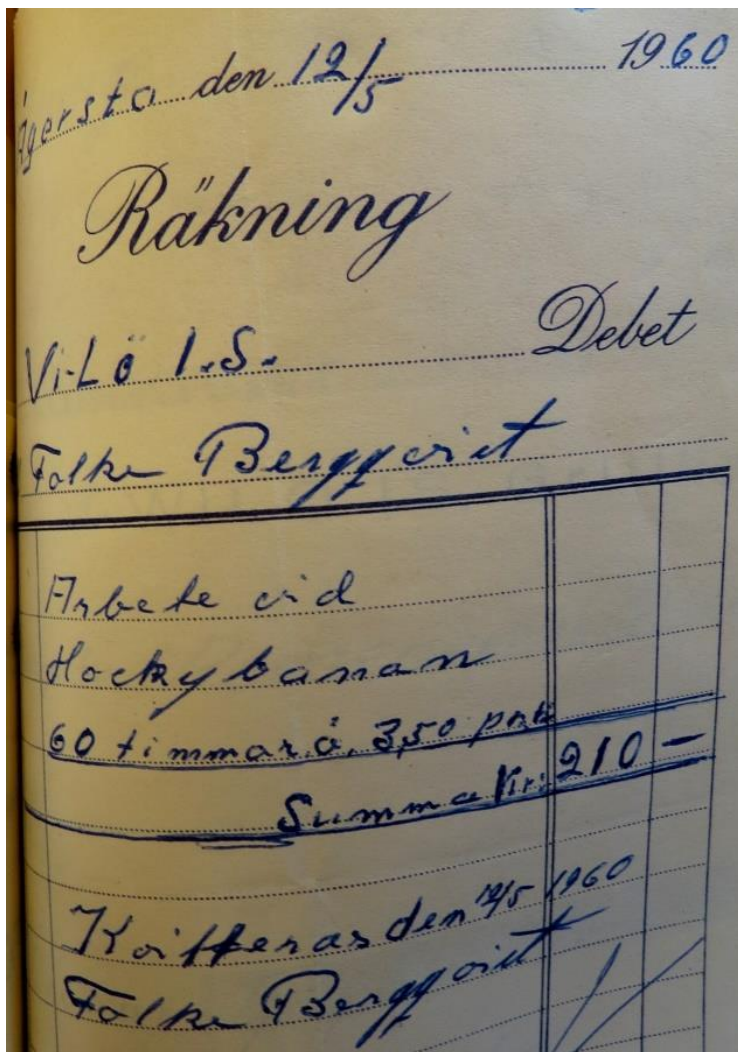 Ågersta den 12/5 1960
Räkning
Vi-Lö I.S. Debet
Folke Bergqvist
Arbete vid
Hockybanan
60 timmar á. 3,50 pr.
Summa Kr: 210 —
Kvitteras den 12/5 1960
Folke Bergqvist